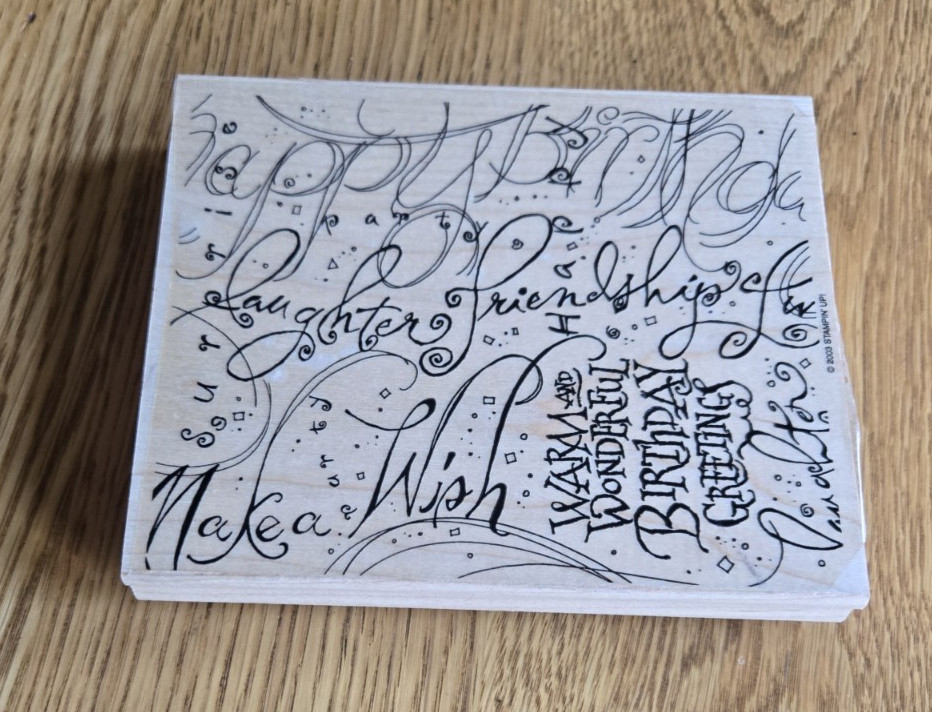 happy birthda
surprise
party
laughter
friendship
Hap
Make a Wish
party
WARM AND
WONDERFUL
BIRTHDAY
GREETINGS
© 2003 STAMPIN' UP!